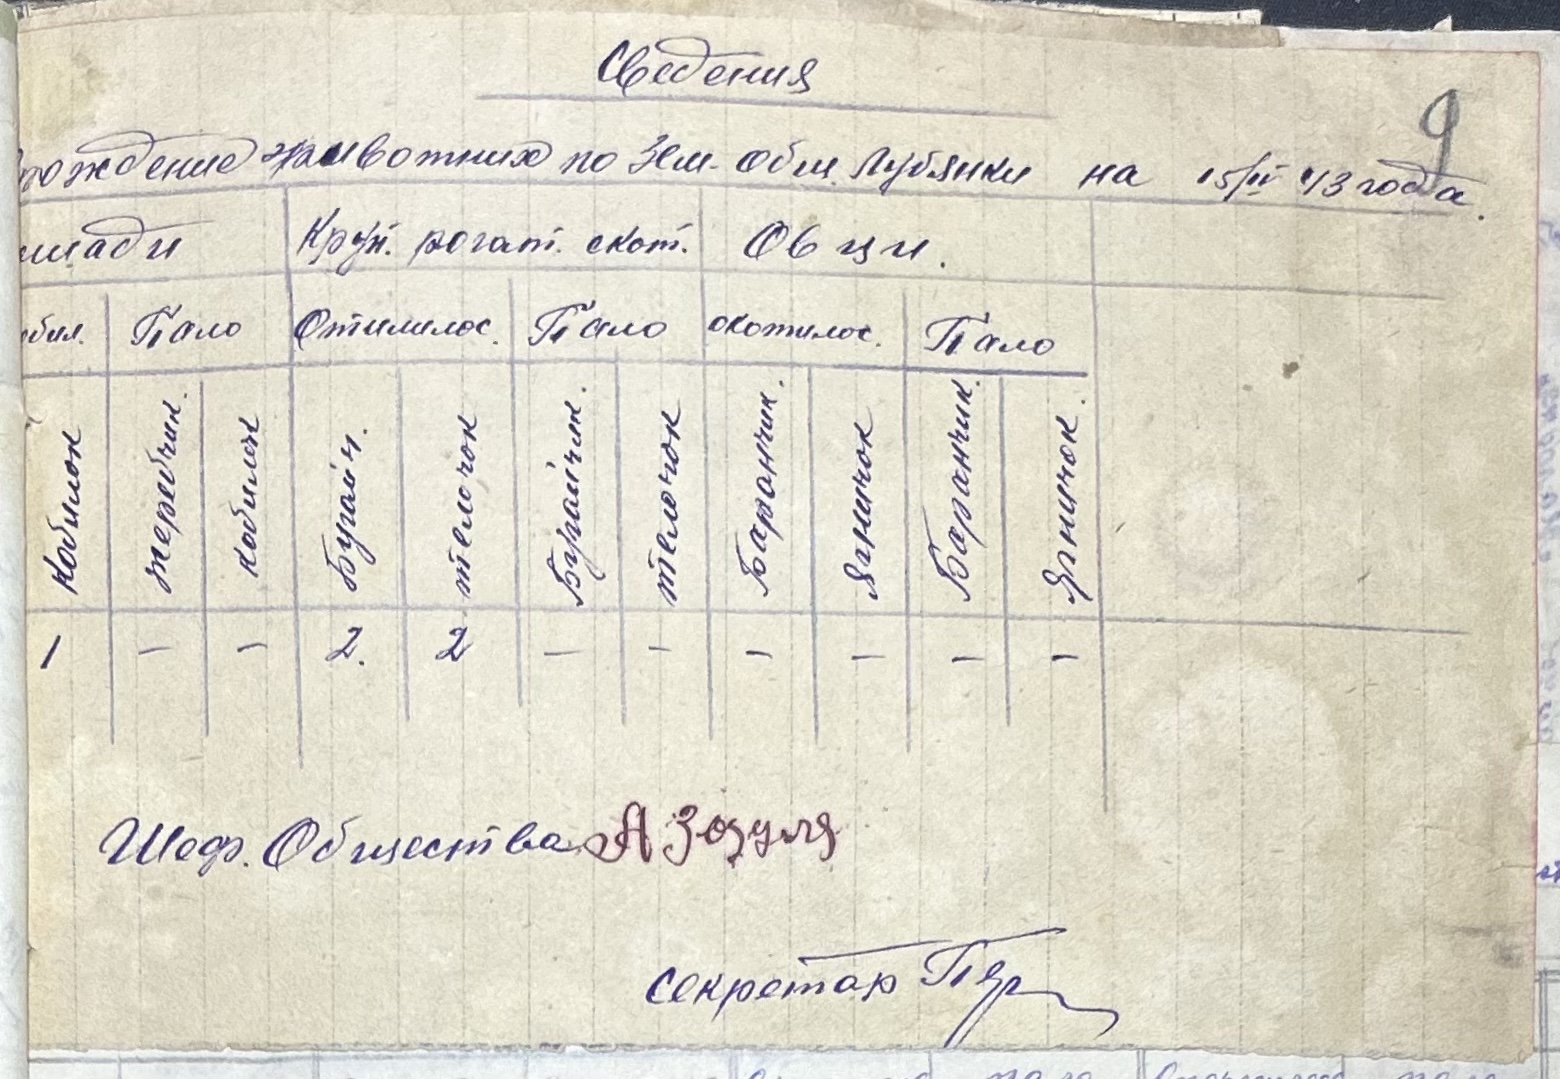 Сведения
9
рождение животних по Зем. общ. Лубянки на 15/IV 43 года.
шади Круп. рогат. скот. Овци.
обил. Пало Отилилос. Пало окотилос. Пало
кобилок жеребчик. кобилок Бугайч. телочок Бугайчик. телочок Баранчик. Ягничок Баранчик. Ягничок.
1 – – 2. 2 – – – – – –
Шеф. Общества А Зозуля
секретар